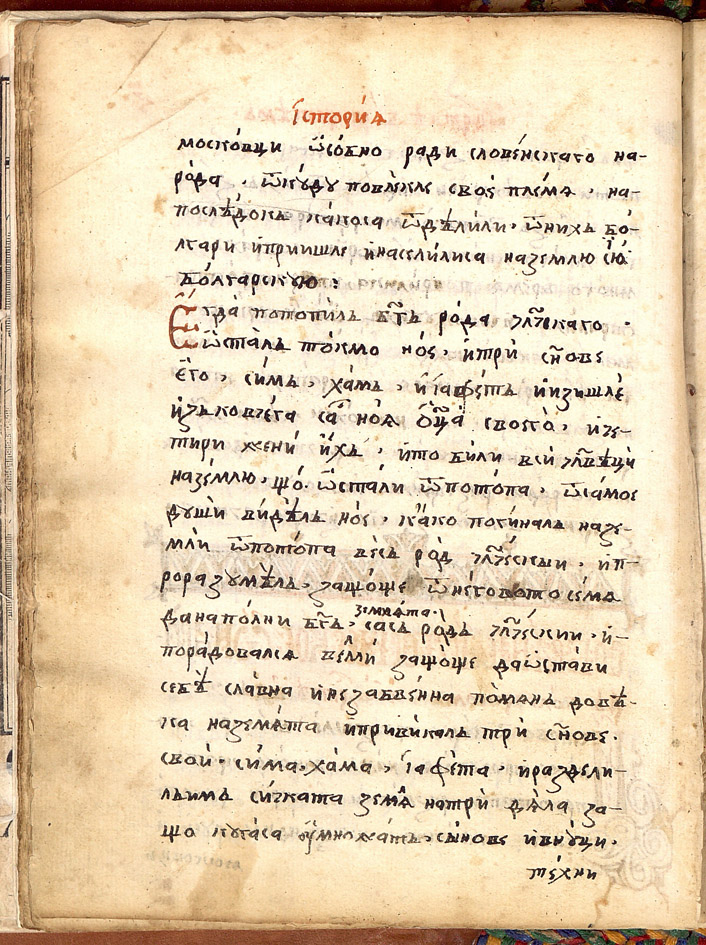 їсторїѧ
москѡвци ѿсобно ради словенскаго на-
рода , ѿкуду повлекле своѐ племѧ , на-
послѣдокъ какоса ѿдѣлили , ѿнихъ бо-
лгари и приишле и населилиса наземлю сїю
болгарскую :
Егда потопилъ бг҃ъ рода чл҃ческаго .
ѡсталъ токмо ноѐ , и трѝ сн҃ове
его , симъ , хамъ , и їафетъ и изишле
изъ ковчега са ноѧ ѡц҃а своего , и че-
тири жени ихъ , и то били вси чл҃вѣци
наземлю , що ѡстали ѿ потопа , ѡсамое
души видѣлъ ное , како погиналъ назе-
мли ѿ потопа весъ род чл҃чески , и п-
роразумѣлъ , защоше ѿ негово то семѧ
данаполни бг҃ъ , земѧта . сасъ родъ чл҃чески , и-
порадовалсѧ велми защоше да ѡстави
себѣ славна и незабвенна поменъ довѣ-
ка наземѧта и привикалъ трѝ сн҃ове .
свои . сима . хама , їафета , и раздели-
лъимъ сичката земѧ на трѝ дѧла за-
що когаса умножатъ . сынове и внуци .
техни